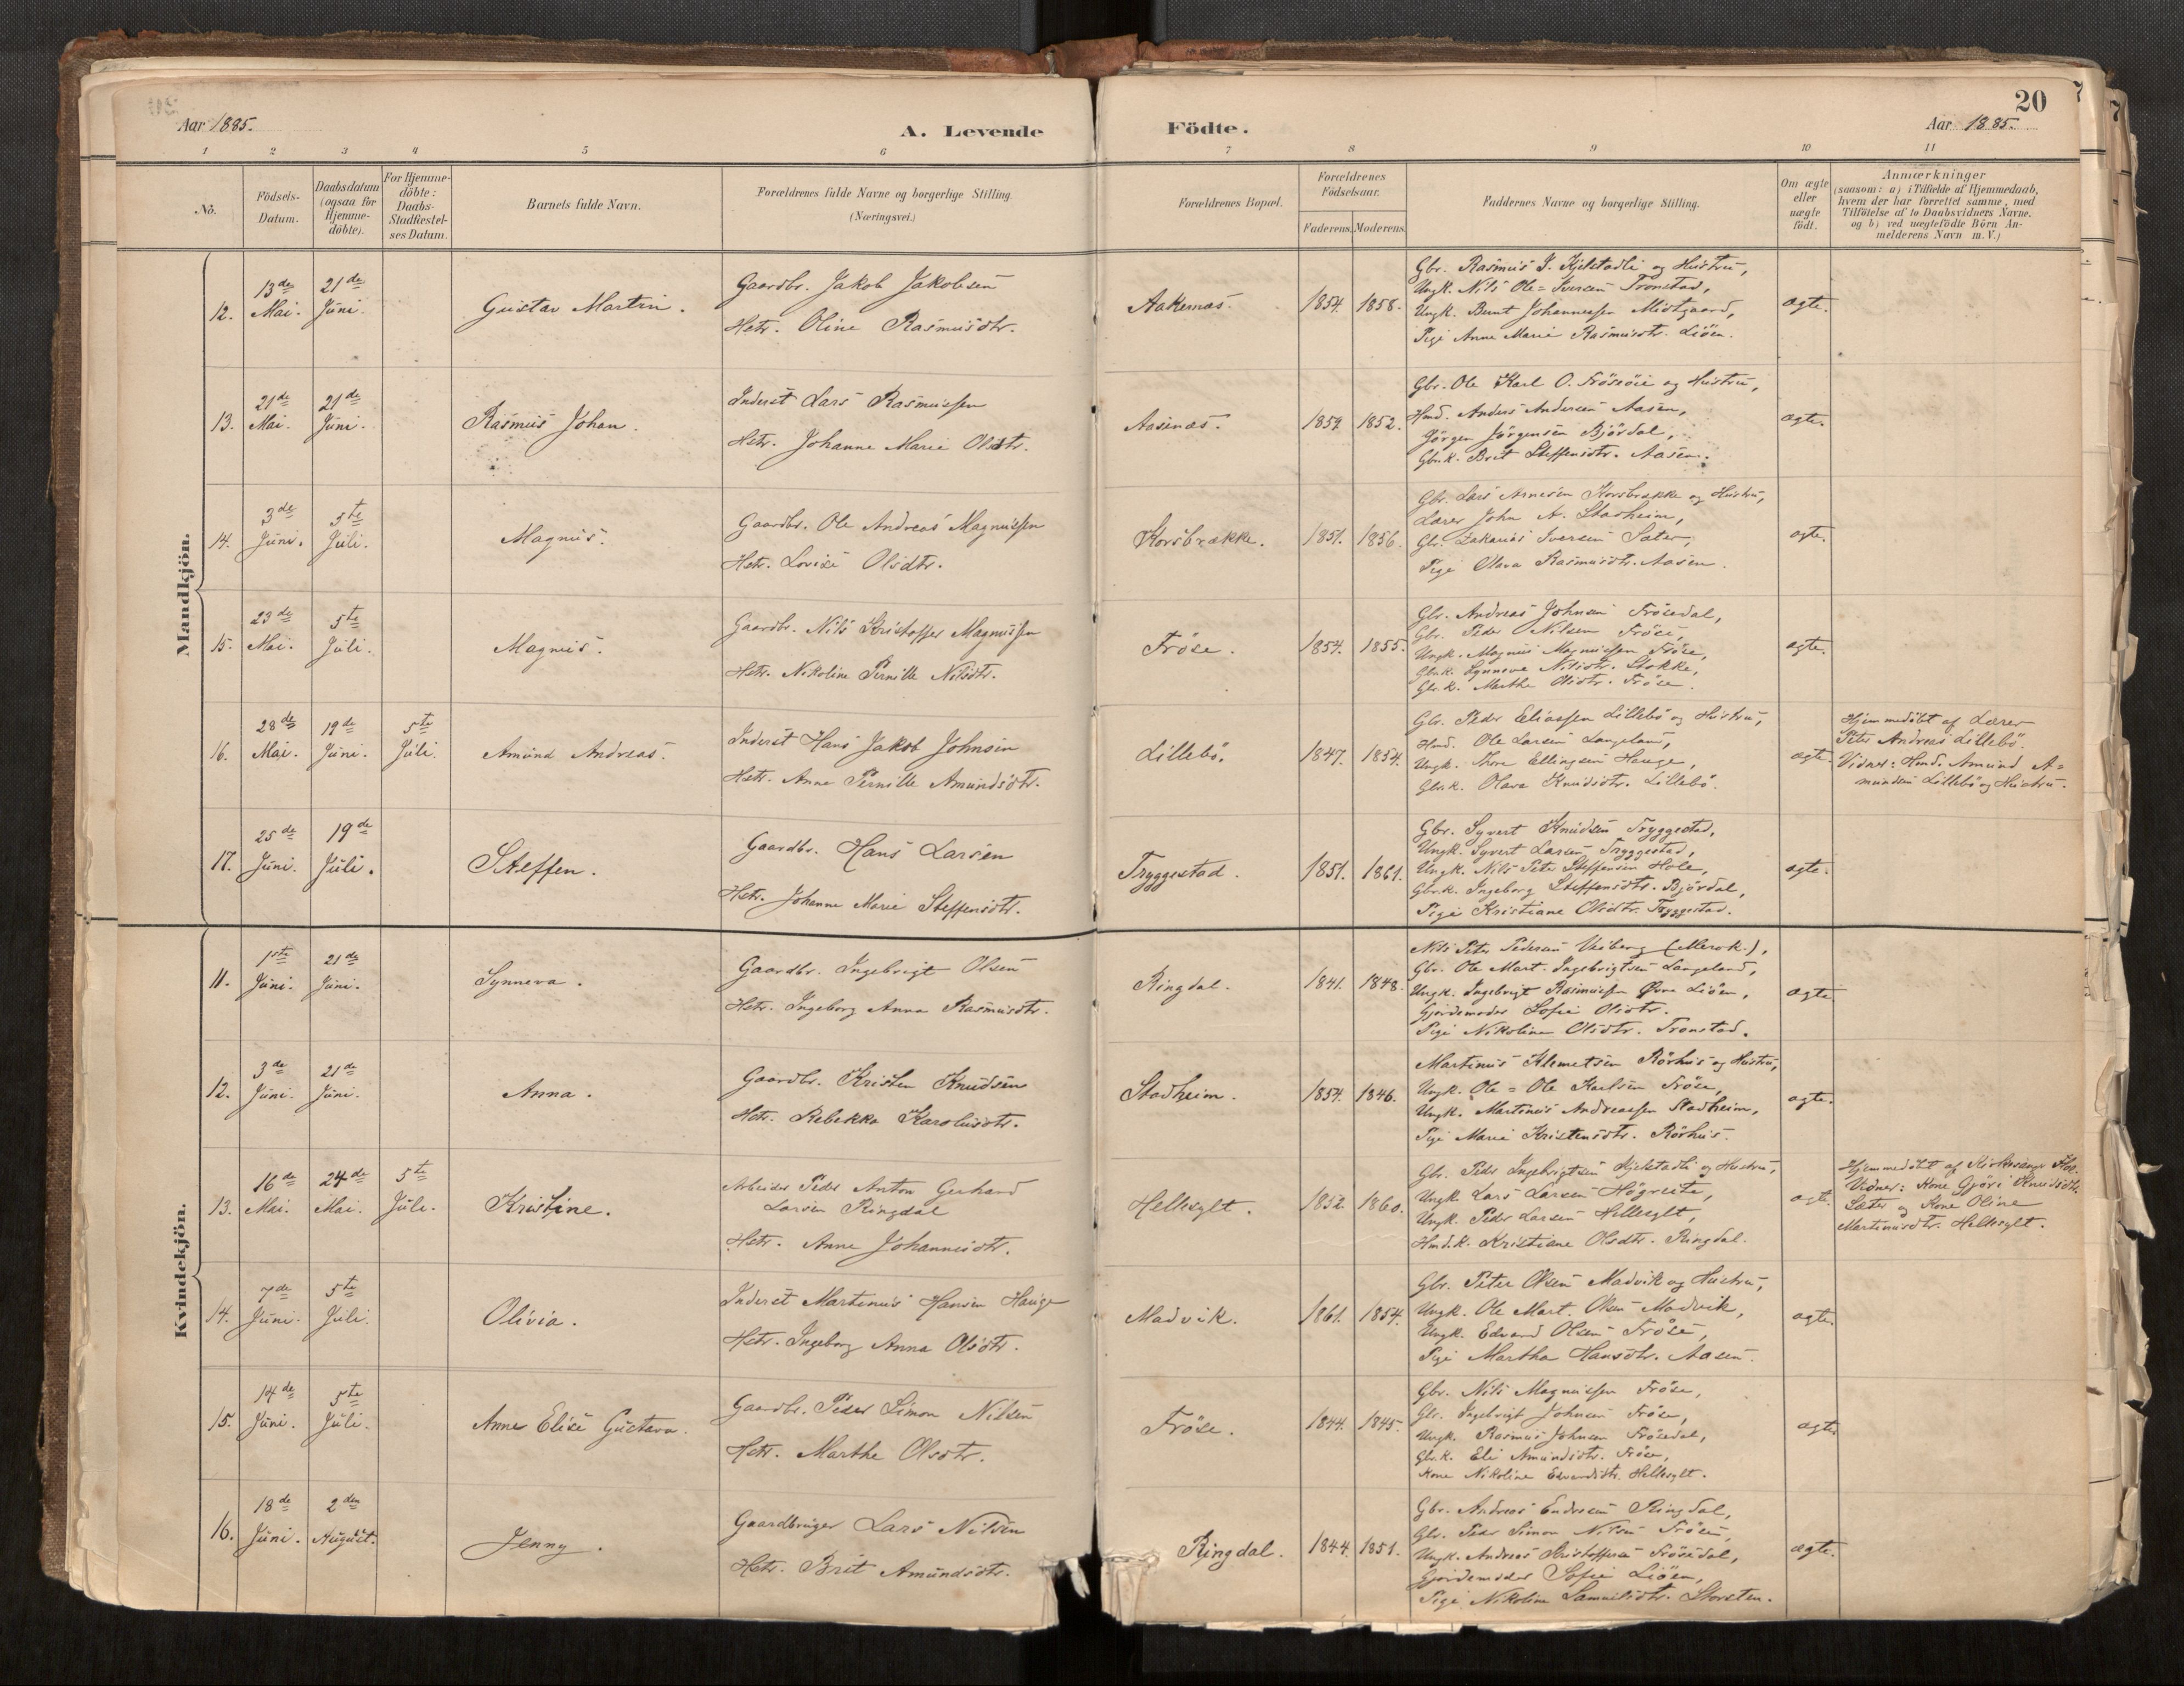 Aar 1885.
A. Levende
1 2 3 4 5 6
No.
Födsels-Datum.
Daabsdatum (ogsaa for Hjemme-döbte).
For Hjemme-döbte: Daabs-Stadfæstel-ses Datum.
Barnets fulde Navn.
Forældrenes fulde Navne og borgerlige Stilling.
(Næringsvei.)
Födte.
20
Aar 1885.
7 8 9 10 11
Forældrenes Bopæl.
Forældrenes Födselsaar.
Faderens. Moderens.
Faddernes Navne og borgerlige Stilling.
Om ægte eller uægte födt.
Anmærkninger
(saasom: a) i Tilfælde af Hjemmedaab,
hvem der har forrettet samme, med
Tilföielse af to Daabsvidners Navne.
og b) ved uægtefödte Börn An-
melderens Navn m. V.)
Mandkjön.
12. 13de Mai. 21de Juni. Gustav Martin.
Gaardbr. Jakob Jakobsen
Hstr. Oline Rasmusdtr.
Aakernæs. 1854. 1858.
Gbr. Rasmus J. Kjelstadli og Hustru,
Ungk. Nils Ole= Iversen Tronstad,
Ungk. Bernt Johannessen Midtgaard,
Pige Anne Marie Rasmusdtr. Liöen.
ægte.
13. 21de Mai. 21de Juni. Rasmus Johan.
Inderst Lars Rasmussen
Hstr. Johanne Marie Olsdtr.
Aasenæs. 1859 1852.
Gbr. Ole Karl O. Fröseöie og Hustru,
Hmd. Anders Andersen Aasen,
Jörgen Jörgensen Björdal,
Gbr.k. Brit Steffensdtr. Aasen.
ægte.
14. 3de Juni. 5te Juli. Magnus.
Gaardbr. Ole Andreas Magnussen
Hstr. Lovise Olsdtr.
Korsbrække. 1851. 1856.
Gbr. Lars Arnesen Korsbrække og Hustru,
Lærer John A. Stadheim,
Gbr. Zakarias Iversen Sæter,
Pige Olava Rasmusdtr. Aasen.
ægte.
15. 23de Mai. 5te Juli. Magnus.
Gaardbr. Nils Kristoffer Magnussen
Hstr. Nikoline Pernille Nilsdtr.
Fröse. 1854. 1855.
Gbr. Andreas Johnsen Frösedal,
Gbr. Peder Nilsen Fröse,
Ungk. Magnus Magnussen Fröse,
Gbr.k. Synneve Nilsdtr. Stokke,
Gbr.k. Marthe Olsdtr. Fröse.
ægte.
16. 28de Mai. 19de Juni. 5te Juli. Amund Andreas.
Inderst Hans Jakob Johnsen
Hstr. Anne Pernille Amundsdtr.
Lillebö. 1847. 1854.
Gbr. Peder Eliassen Lillebö og Hustru,
Hmd. Ole Larsen Langeland,
Ungk. Thore Ellingsen Hauge,
Gbr.k. Olava Knudsdtr. Lillebö.
ægte.
Hjemmedöbt af Lærer
Peter Andreas Lillebö.
Vidner: Hmd. Amund A=
mundsen Lillebö og Hustru.
17. 25de Juni. 19de Juli. Steffen.
Gaardbr. Hans Larsen
Hstr. Johanne Marie Steffensdtr.
Tryggestad. 1851. 1861.
Gbr. Syvert Knudsen Tryggestad,
Ungk. Syvert Larsen Tryggestad,
Ungk. Nils Peter Steffensen Hole,
Gbr.k. Ingeborg Steffensdtr. Björdal,
Pige Kristiane Olsdtr. Tryggestad.
ægte.
Kvindekjön.
11. 1ste Juni. 21de Juni. Synneva.
Gaardbr. Ingebrigt Olsen
Hstr. Ingeborg Anna Rasmusdtr.
Ringdal. 1841. 1848.
Nils Peter Pedersen Viberg (Merok.),
Gbr. Ole Mart. Ingebrigtsen Langeland,
Ungk. Ingebrigt Rasmussen Övre Liöen,
Gjordemoder Sofie Olsdtr.
Pige Nikoline Olsdtr. Tronstad.
ægte
12. 3de Juni. 21de Juni. Anna.
Gaardbr. Kristen Knudsen
Hstr. Rebekka Karolusdtr.
Stadheim. 1854. 1846.
Martinus Klemetsen Rörhus og Hustru,
Ungk. Ole= Ole Karlsen Fröse,
Ungk. Martinus Andreassen Stadheim,
Pige Marie Kristensdtr. Rörhus.
ægte.
13. 16de Mai. 24de Mai. 5te Juli. Kristine.
Arbeider Peder Anton Gerhard
Larsen Ringdal
Hstr. Anne Johannesdtr.
Hellesylt. 1852. 1860.
Gbr. Peder Ingebrigtsen Kjelstadli og Hustru,
Ungk. Lars Larsen Högreite,
Ungk. Peder Larsen Hellesylt,
Hmd.k. Kristiane Olsdtr. Ringdal.
ægte.
Hjemmedöbt af Kirkesanger
Vidner: Kone Gjöri Knudsdtr.
Sæter og Kone Oline
Martinusdtr. Hellesylt.
14. 7de Juni. 5te Juli. Olivia.
Inderst Martinus Hansen Hauge
Hstr. Ingeborg Anna Olsdtr.
Madvik. 1861. 1854.
Gbr. Peter Olsen Madvik og Hustru,
Ungk. Ole Mart. Olsen Madvik,
Ungk. Edvard Olsen Fröse,
Pige Martha Hansdtr. Aasen.
ægte.
15. 14de Juni. 5te Juli. Anne Elise Gustava.
Gaardbr. Peder Simon Nilsen
Hstr. Marthe Olsdtr.
Fröse. 1844. 1845.
Gbr. Nils Magnussen Fröse,
Gbr. Ingebrigt Johnsen Fröse,
Ungk. Rasmus Johnsen Frösedal,
Gbr.k. Eli Amundsdtr. Fröse,
Kone Nikoline Edvardsdtr. Hellesylt.
ægte
16. 18de Juni. 2den August. Jenny.
Gaardbruger Lars Nilsen
Hstr. Brit Amundsdtr.
Ringdal. 1844. 1851.
Gbr. Andreas Endresen Ringdal,
Gbr. Peder Simon Nilsen Fröse,
Ungk. Andreas Kristoffersen Frösedal,
Gjordemoder Sofie Liöen,
Pige Nikoline Samuelsdtr. Storsten.
ægte.